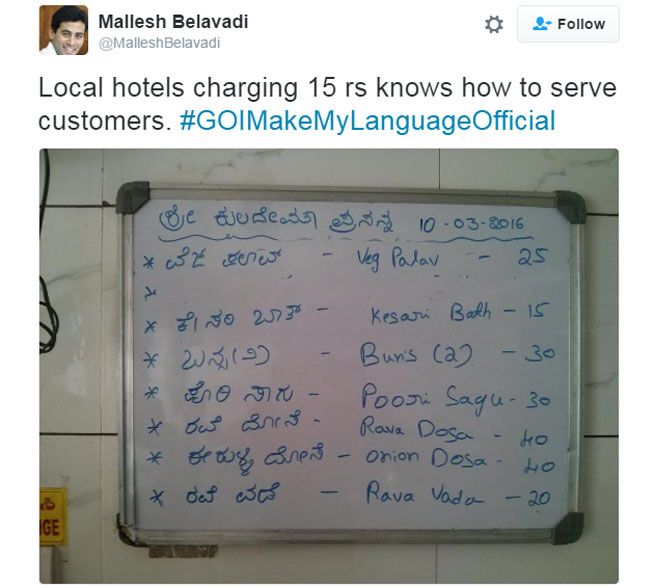 Mallesh Belavadi
@MalleshBelavadi
Follow
Local hotels charging 15 rs knows how to serve
customers. #GOIMakeMyLanguageOfficial
ಶ್ರೀ ಕುಲದೇವತಾ ಪ್ರಸನ್ನ 10-03-2016
* ವೆಜ್ ಪಲಾವ್ - Veg Palav - 25
* ಕೇಸರಿ ಬಾತ್ - Kesari Bath - 15
* ಬನ್ಸ (೨) - Buns (2) - 30
* ಪೂರಿ ಸಾಗು - Poori Sagu - 30
* ರವೆ ದೋಸೆ - Rava Dosa - 40
* ಈರುಳ್ಳಿ ದೋಸೆ - onion Dosa - 40
* ರವೆ ವಡೆ - Rava Vada - 20